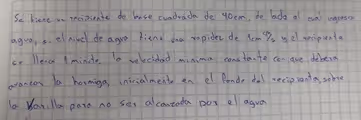 Se tiene un recipiente de base cuadrada de 40cm, de lado al cual ingresa
agua, si el nivel de agua tiene una rapidez de 1cm/s y el recipiente
se llena 1 minuto. la velocidad minima constante con que debera
avanzar la hormiga, inicialmente en el fondo del recipiente, sobre
la varilla para no ser alcanzada por el agua